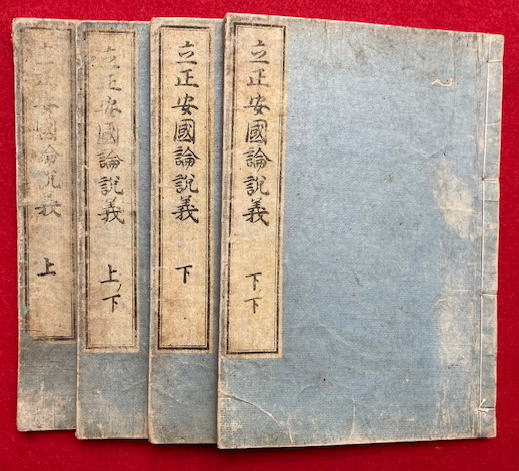 立正安國論說義
上
立正安國論說義
上ノ下
立正安國論說義
下
立正安國論說義
下下